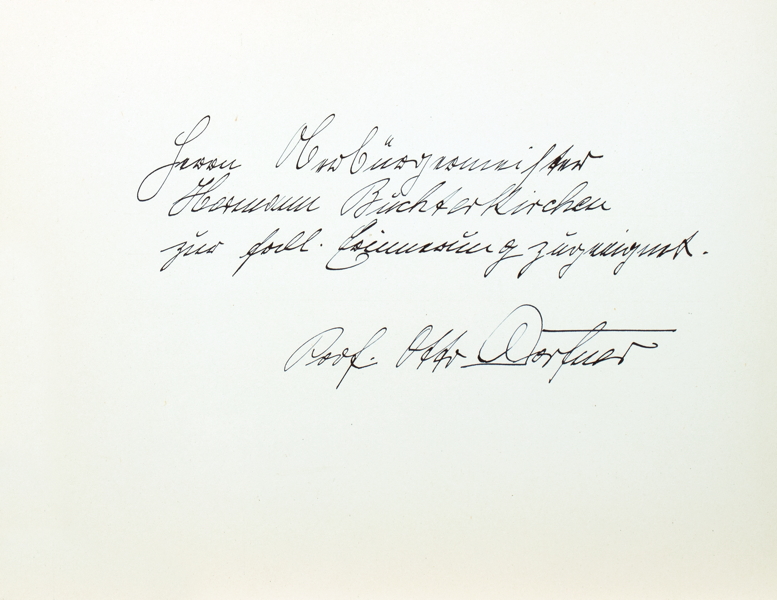 Herrn Oberbürgermeister
Hermann Büchterkirchen
zur frdl. Erinnerung zugeeignet.
Prof. Otto Dorfner